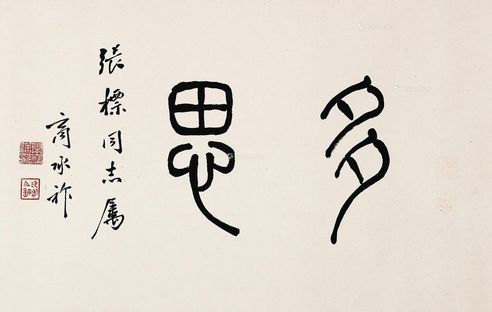 多思
張標同志属
商承祚